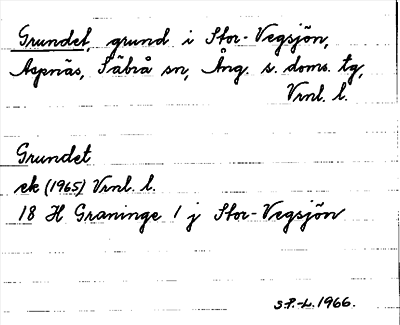 Grundet, grund i Stor-Vegsjön,
Aspnäs, Säbrå sn, Ång. s. doms. tg,
Vrnl. l.
Grundet
ek (1965) Vrnl. l.
18 H Graninge 1 j Stor-Vegsjön
S.P.-L. 1966.